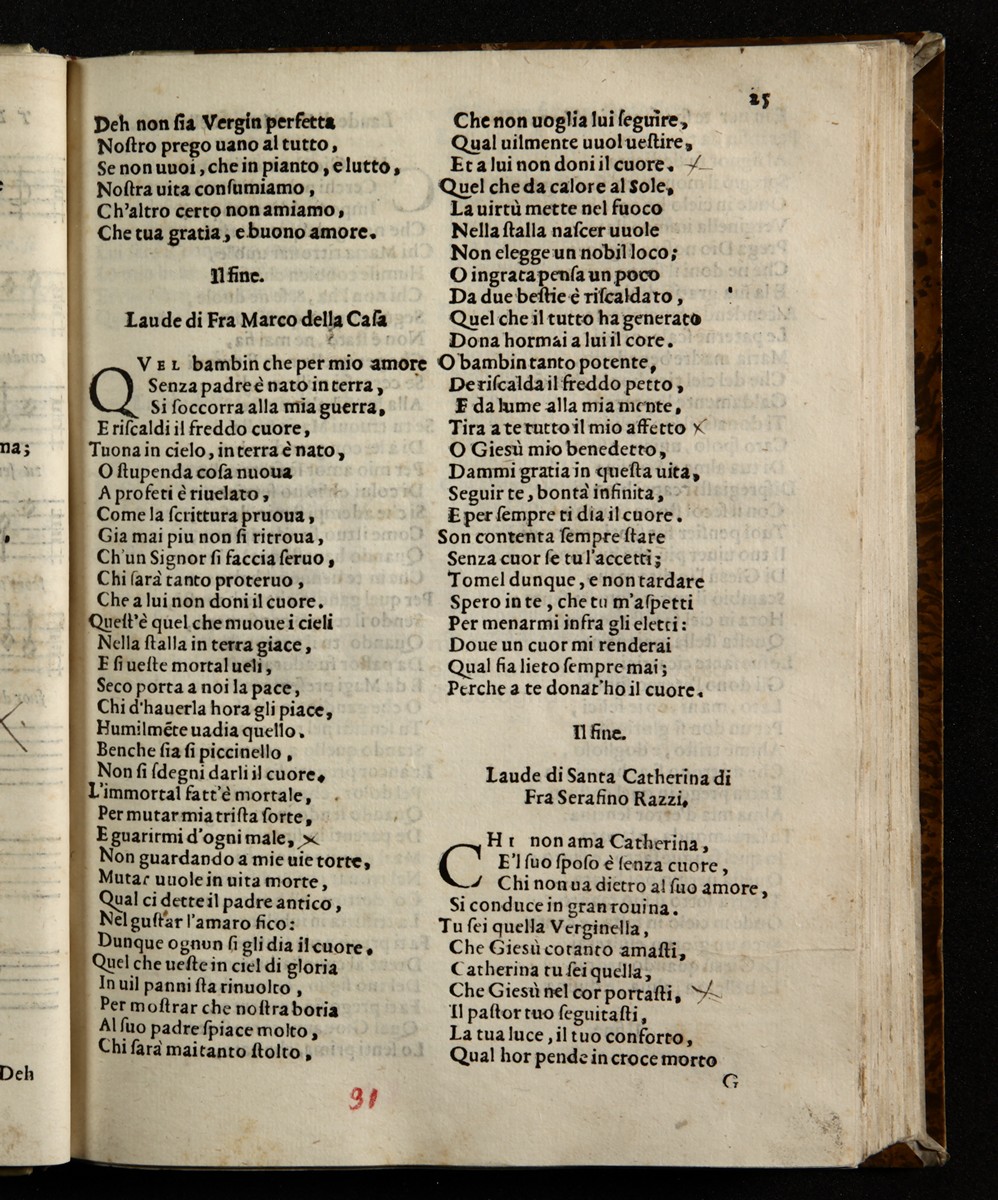 25
Deh non ſia Vergin perfetta
Noſtro prego uano al tutto,
Se non uuoi, che in pianto, e lutto,
Noſtra uita conſumiamo,
Ch'altro certo non amiamo,
Che tua gratia, e buono amore.
Il fine.
Laude di Fra Marco della Caſa
QVEL bambin che per mio amore
Senza padre è nato in terra,
Si ſoccorra alla mia guerra,
E riſcaldi il freddo cuore,
Tuona in cielo, in terra è nato,
O ſtupenda coſa nuoua
A profeti è riuelato,
Come la ſcrittura pruoua,
Gia mai piu non ſi ritroua,
Ch'un Signor ſi faccia ſeruo,
Chi ſarà tanto proteruo,
Che a lui non doni il cuore.
Queſt'è quel che muoue i cieli
Nella ſtalla in terra giace,
E ſi ueſte mortal ueli,
Seco porta a noi la pace,
Chi d'hauerla hora gli piace,
Humilmẽte uadia quello.
Benche ſia ſi piccinello,
Non ſi ſdegni darli il cuore.
L'immortal fatt'è mortale,
Per mutar mia triſta ſorte,
E guarirmi d'ogni male,
Non guardando a mie uie torte,
Mutar uuole in uita morte,
Qual ci dette il padre antico,
Nel guſtar l'amaro fico:
Dunque ognun ſi gli dia il cuore.
Quel che ueſte in ciel di gloria
In uil panni ſta rinuolto,
Per moſtrar che noſtra boria
Al ſuo padre ſpiace molto,
Chi ſarà mai tanto ſtolto,
Che non uoglia lui ſeguire,
Qual uilmente uuol ueſtire,
Et a lui non doni il cuore.
Quel che da calore al Sole,
La uirtù mette nel fuoco
Nella ſtalla naſcer uuole
Non elegge un nobil loco;
O ingrata penſa un poco
Da due beſtie è riſcaldato,
Quel che il tutto ha generato
Dona hormai a lui il core.
O bambin tanto potente,
De riſcalda il freddo petto,
E da lume alla mia mente,
Tira a te tutto il mio affetto
O Gieſù mio benedetto,
Dammi gratia in queſta uita,
Seguir te, bontà infinita,
E per ſempre ti dia il cuore.
Son contenta ſempre ſtare
Senza cuor ſe tu l'accetti;
Tomel dunque, e non tardare
Spero in te, che tu m'aſpetti
Per menarmi infra gli eletti:
Doue un cuor mi renderai
Qual fia lieto ſempre mai;
Perche a te donat'ho il cuore.
Il fine.
Laude di Santa Catherina di
Fra Serafino Razzi.
CHI non ama Catherina,
E'l ſuo ſpoſo è ſenza cuore,
Chi non ua dietro al ſuo amore,
Si conduce in gran rouina.
Tu ſei quella Verginella,
Che Gieſù cotanto amaſti,
Catherina tu ſei quella,
Che Gieſù nel cor portaſti,
Il paſtor tuo ſeguitaſti,
La tua luce, il tuo conforto,
Qual hor pende in croce morto
G
31
na;
Deh